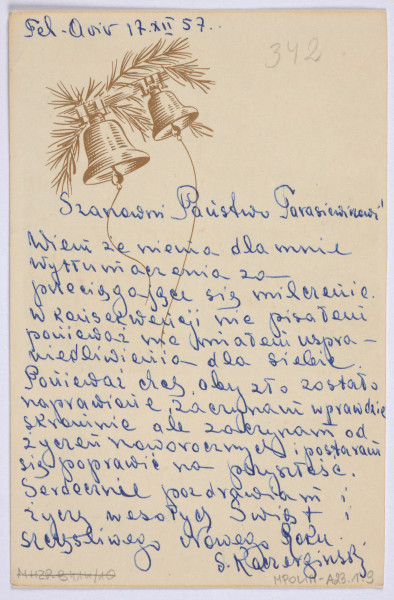 Tel-Aviv 17.XII 57.
342
Szanowni Państwo Tarasiewiczowi!
Wiem że niema dla mnie
wytłumaczenia za
przeciągające się milczenie.
W konsekwencji nie pisałem
ponieważ nie miałem uspra-
wiedliwienia dla siebie.
Ponieważ chcę aby zło zostało
naprawione, zaczynam wprawdzie
skromnie ale zaczynam od
życzeń noworocznych i postaram
się poprawić na przyszłość.
Serdecznie pozdrawiam i
życzę wesołych Świąt i
szczęśliwego Nowego Roku.
S. Kaczerginski
MPOLIN-A23.1.9